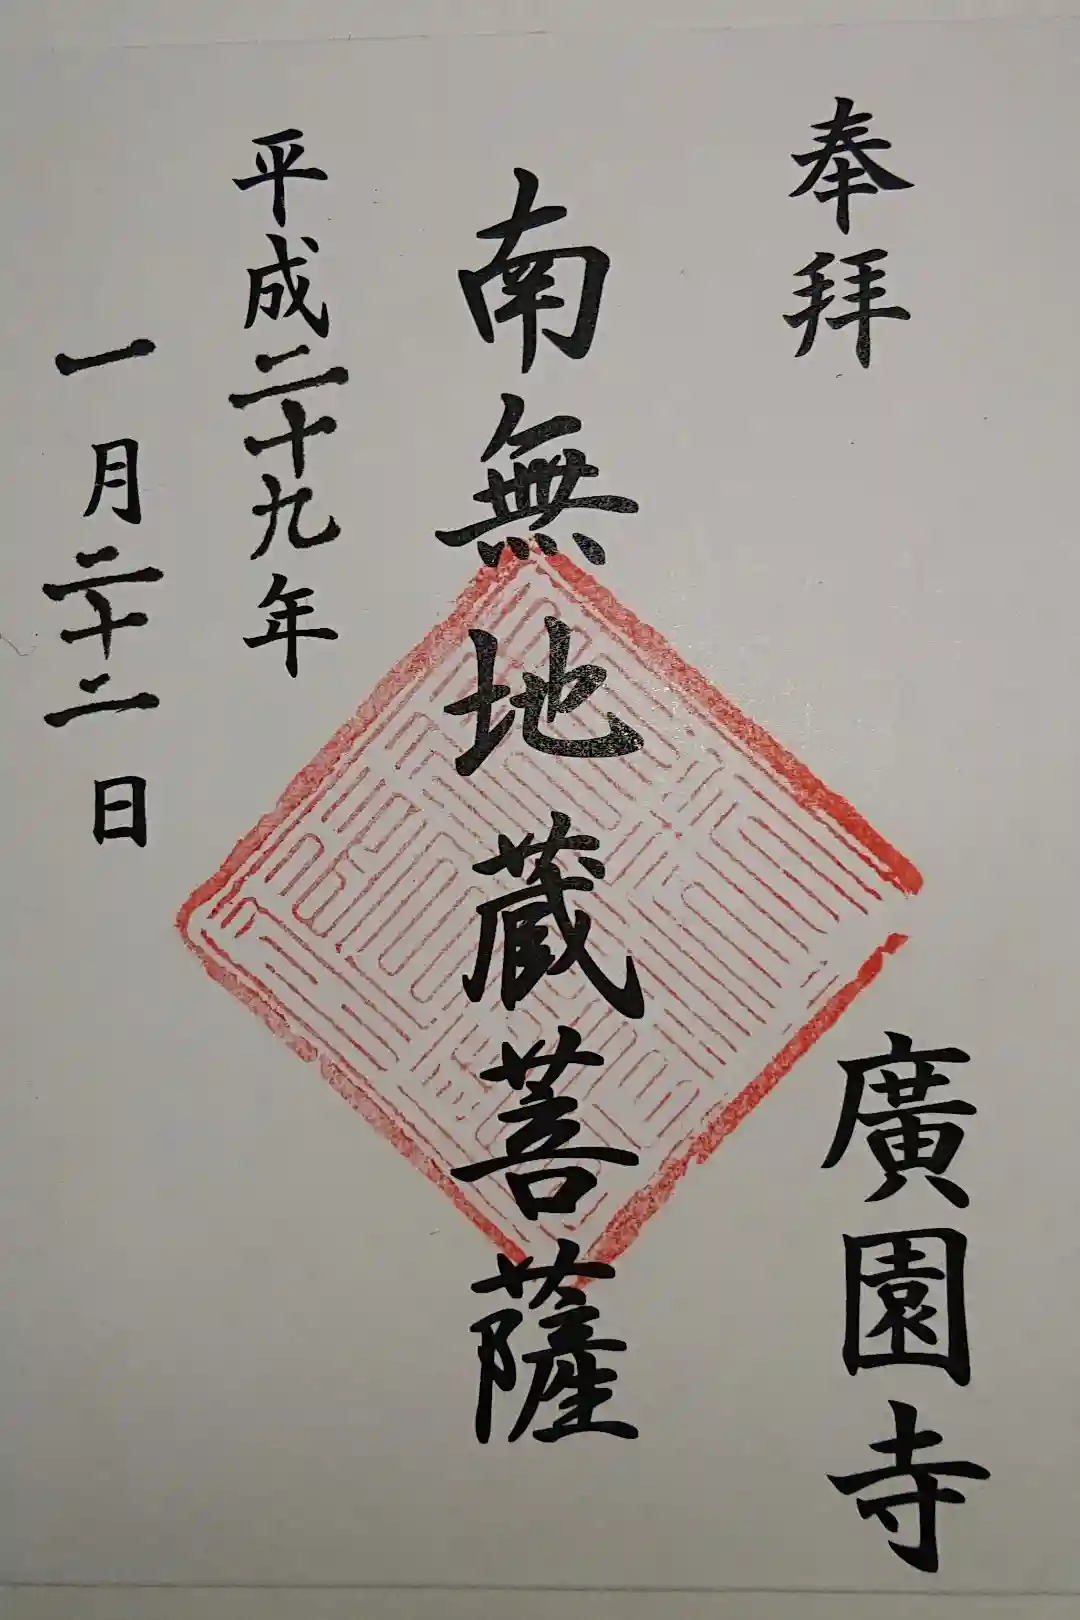 奉拜
廣園寺
南無地蔵菩薩
平成二十九年
一月二十二日